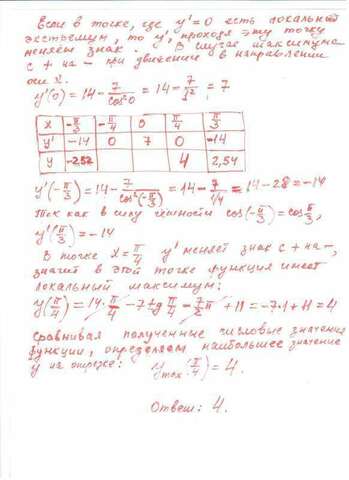 Если в точке, где y'=0 есть локальный
экстремум, то y', проходя эту точку
меняет знак. В случае максимума
с + на - при движении в направлении
оси x.
y'(0)=14-7/cos²0=14-7/1²=7
x -π/3 -π/4 0 π/4 π/3
y' -14 0 7 0 -14
y -2,52 4 2,54
y'(-π/3)=14-7/cos²(-π/3)=14-7/1/4=14-28=-14
Так как в силу чётности cos(-π/3)=cos π/3,
y'(π/3)=-14
В точке x=π/4 y' меняет знак с + на -,
значит в этой точке функция имеет
локальный максимум:
y(π/4)=14·π/4-7tg π/4-7/2π+11=-7·1+11=4
Сравнивая полученные числовые значения
функции, определяем наибольшее значение
y на отрезке: y max(π/4)=4.
Ответ: 4.